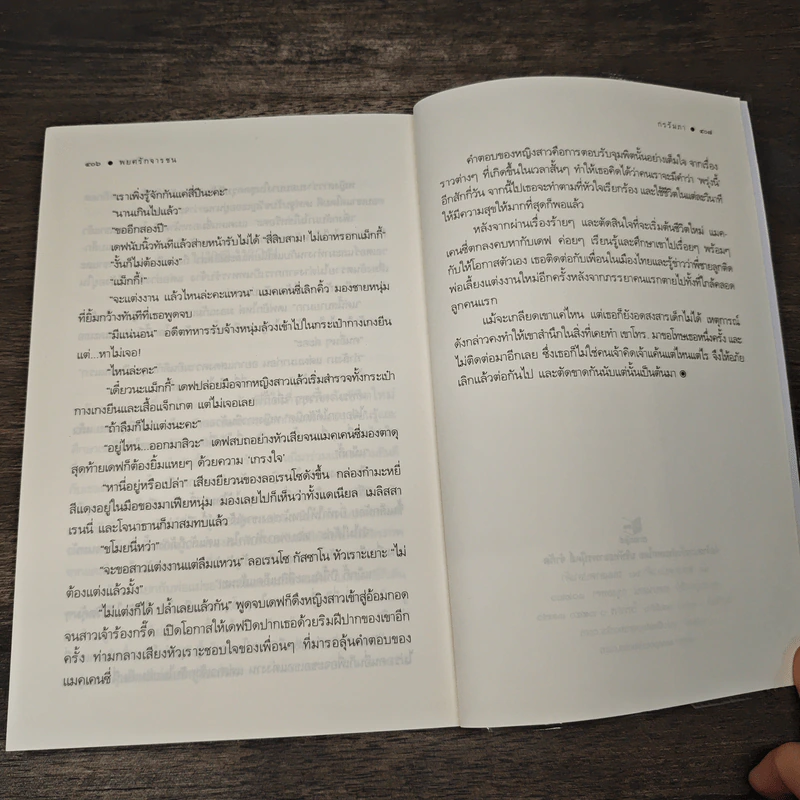 ๔๓๖ ● พยศรักจารชน
"เราเพิ่งรู้จักกันแค่สี่ปีนะคะ"
"นานเกินไปแล้ว"
"ขออีกสองปี"
เดฟนับนิ้วทันทีแล้วส่ายหน้ารับไม่ได้ "สี่สิบสาม! ไม่เอาหรอกแม็กกี้"
"งั้นก็ไม่ต้องแต่ง"
"แม็กกี้!"
"จะแต่งงาน แล้วไหนล่ะคะแหวน" แมคเคนซี่เลิกคิ้ว มองชายหนุ่ม
ที่ยิ้มกว้างทันทีที่เธอพูดจบ
"มีแน่นอน" อดีตทหารรับจ้างหนุ่มล้วงเข้าไปในกระเป๋ากางเกงยีน
แต่...หาไม่เจอ!
"ไหนล่ะคะ"
"เดี๋ยวนะแม็กกี้" เดฟปล่อยมือจากหญิงสาวแล้วเริ่มสำรวจทั้งกระเป๋า
กางเกงยีนและเสื้อแจ็กเกต แต่ไม่เจอเลย
"ถ้าลืมก็ไม่แต่งนะคะ"
"อยู่ไหน...ออกมาสิวะ" เดฟสบถอย่างหัวเสียจนแมคเคนซี่มองตาดุ
สุดท้ายเดฟก็ต้องยิ้มแหยๆ ด้วยความ 'เกรงใจ'
"หานี่อยู่หรือเปล่า" เสียงยียวนของลอเรนโซดังขึ้น กล่องกำมะหยี่
สีแดงอยู่ในมือของมาเฟียหนุ่ม มองเลยไปก็เห็นว่าทั้งแดเนียล เมลิสสา
เรนนี่ และโจนาธานก็มาสมทบแล้ว
"ขโมยนี่หว่า"
"จะขอสาวแต่งงานแต่ลืมแหวน" ลอเรนโซ กัสซาโน หัวเราะเยาะ "ไม่
ต้องแต่งแล้วมั้ง"
"ไม่แต่งก็ได้ ปล้ำเลยแล้วกัน" พูดจบเดฟก็ดึงหญิงสาวเข้าสู่อ้อมกอด
จนสาวเจ้าร้องกรี๊ด เปิดโอกาสให้เดฟปิดปากเธอด้วยริมฝีปากของเขาอีก
ครั้ง ท่ามกลางเสียงหัวเราะชอบใจของเพื่อนๆ ที่มารอลุ้นคำตอบของ
แมคเคนซี่
กรรัมภา ● ๔๓๗
คำตอบของหญิงสาวคือการตอบรับจุมพิตนั้นอย่างเต็มใจ จากเรื่อง
ราวต่างๆ ที่เกิดขึ้นในเวลาสั้นๆ ทำให้เธอคิดได้ว่าคนเราจะมีคำว่า 'พรุ่งนี้'
อีกสักกี่วัน จากนี้ไปเธอจะทำตามที่หัวใจเรียกร้อง และใช้ชีวิตในแต่ละวินาที
ให้มีความสุขให้มากที่สุดก็พอแล้ว
หลังจากผ่านเรื่องร้ายๆ และตัดสินใจที่จะเริ่มต้นชีวิตใหม่ แมค-
เคนซี่ตกลงคบหากับเดฟ ค่อยๆ เรียนรู้และศึกษาเขาไปเรื่อยๆ พร้อมๆ
กับให้โอกาสตัวเอง เธอติดต่อกับเพื่อนในเมืองไทยและรู้ข่าวว่าพี่ชายลูกติด
พ่อเลี้ยงแต่งงานใหม่อีกครั้งหลังจากภรรยาคนแรกตายไปทั้งที่ใกล้คลอด
ลูกคนแรก
แม้จะเกลียดเขาแค่ไหน แต่เธอก็ยังอดสงสารเด็กไม่ได้ เหตุการณ์
ดังกล่าวคงทำให้เขาสำนึกในสิ่งที่เคยทำ เขาโทร. มาขอโทษเธอหนึ่งครั้ง และ
ไม่ติดต่อมาอีกเลย ซึ่งเธอก็ไม่ใช่คนเจ้าคิดเจ้าแค้นแต่ไหนแต่ไร จึงให้อภัย
เลิกแล้วต่อกันไป และตัดขาดกันนับแต่นั้นเป็นต้นมา ◉